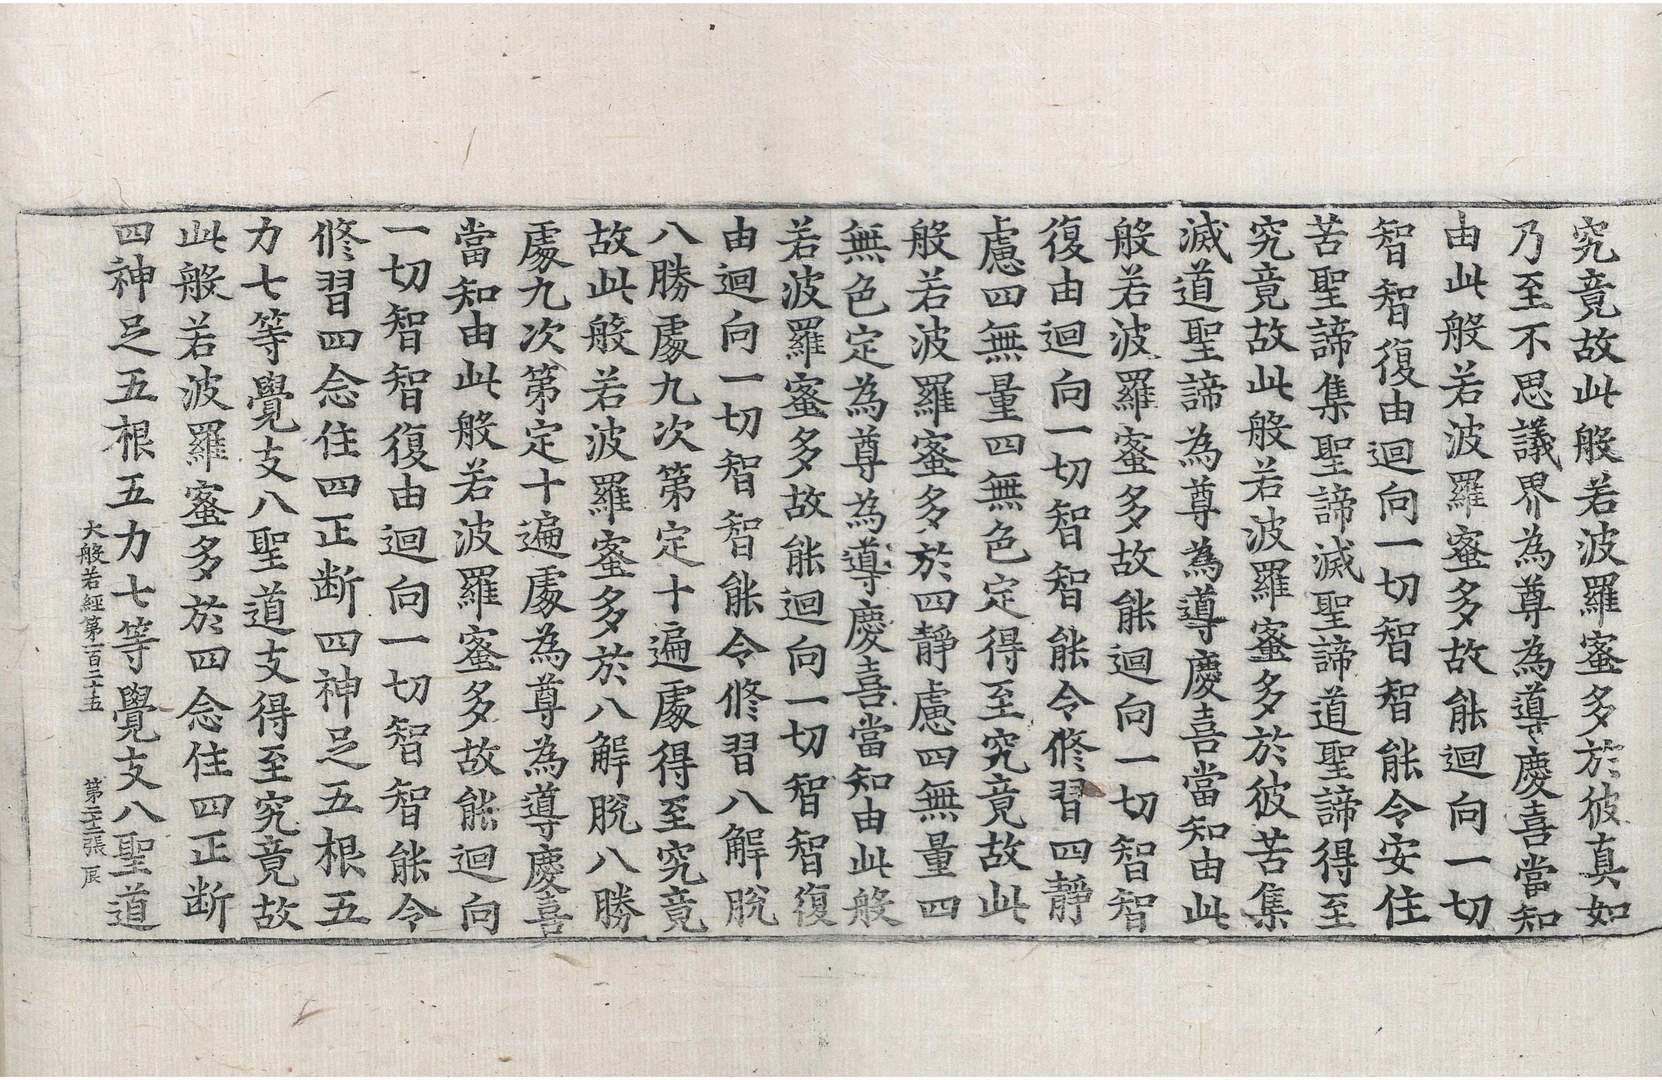 究竟故此般若波羅蜜多於彼真如
乃至不思議界為尊為導慶喜當知
由此般若波羅蜜多故能迴向一切
智智復由迴向一切智智能令安住
苦聖諦集聖諦滅聖諦道聖諦得至
究竟故此般若波羅蜜多於彼苦集
滅道聖諦為尊為導慶喜當知由此
般若波羅蜜多故能迴向一切智智
復由迴向一切智智能令修習四靜
慮四無量四無色定得至究竟故此
般若波羅蜜多於四靜慮四無量四
無色定為尊為導慶喜當知由此般
若波羅蜜多故能迴向一切智智復
由迴向一切智智能令修習八解脫
八勝處九次第定十遍處得至究竟
故此般若波羅蜜多於八解脫八勝
處九次第定十遍處為尊為導慶喜
當知由此般若波羅蜜多故能迴向
一切智智復由迴向一切智智能令
修習四念住四正断四神足五根五
力七等覺支八聖道支得至究竟故
此般若波羅蜜多於四念住四正断
四神足五根五力七等覺支八聖道
大般若經第一百二十五 第二十二張 辰